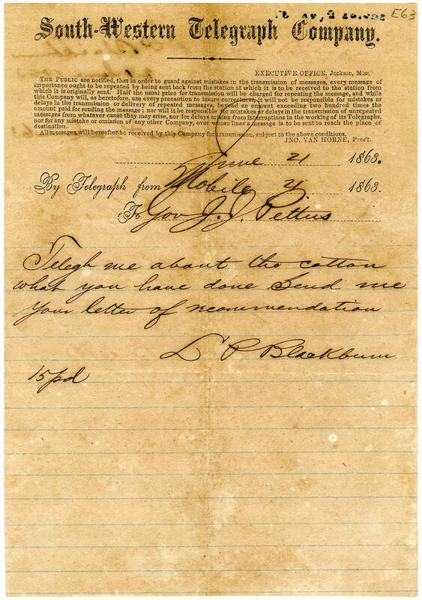 E63
South-Western Telegraph Company.
EXECUTIVE OFFICE, Jackson, Miss.
THE PUBLIC are notified, that in order to guard against mistakes in the transmission of messages, every message of
importance ought to be repeated by being sent back from the station at which it is to be received to the station from
which it is originally sent. Half the usual price for transmission will be charged for repeating the message, and while
this Company will, as heretofore, use every precaution to insure correctness, it will not be responsible for mistakes or
delays in the transmission or delivery of repeated messages, beyond an amount exceeding two hundred times the
amount paid for sending the message; nor will it be responsible for mistakes or delays in the transmission of unrepeated
messages from whatever cause they may arise, nor for delays arising from interruptions in the working of its Telegraphs,
nor for any mistake or omission of any other Company, over whose lines a message is to be sent to reach the place of
destination.
All messages will hereafter be received by this Company for transmission, subject to the above conditions.
JNO. VAN HORNE, Pres't.
June 21 1863.
By Telegraph from Mobile 1863.
To Gov J. J. Pettus
Telegh me about the cotton
what you have done Send me
Your letter of recommendation
L P Blackburn
15pd